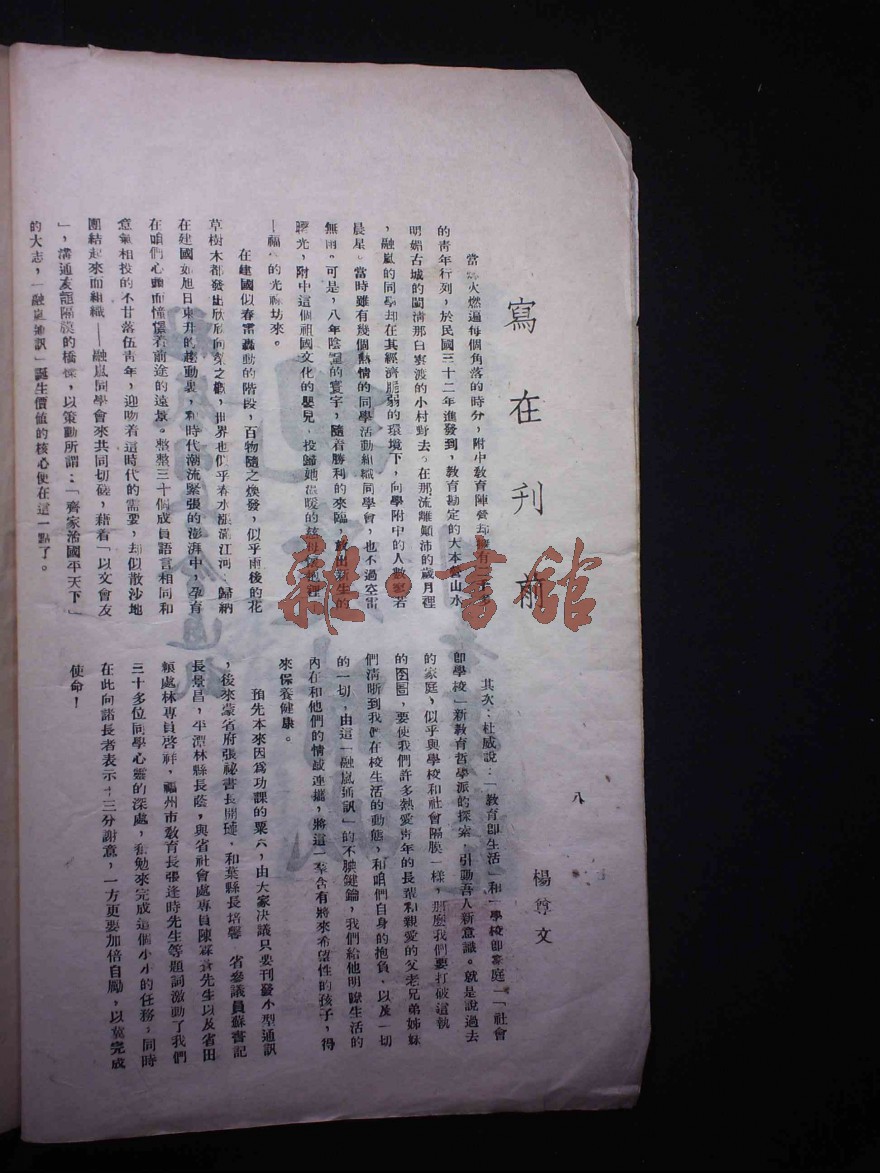 寫在刊前
楊尊文
當火燃遍每個角落的時分，附中教育陣營却擁有
的靑年行列，於民國三十二年進發到，教育勘定的大本營山水
明媚古城的閩淸那白寨渡的小村野去。在那流離顚沛的歲月裡
，融嵐的同學却在其經濟脆弱的環境下，向學附中的人數寥若
晨星。當時雖有幾個熱情的同學活動組織同學會，也不過空雷
無雨。可是，八年陰霾的寰宇，隨着勝利的來臨，放出新生的
曙光，附中這個祖國文化的嬰兒，投歸她溫暖的慈母
—福的光祿坊來。
在建國似春雷轟動的階段，百物隨之煥發，似乎雨後的花
草樹木都發出欣欣向榮之觀，世界也似乎春水漲滿江河，歸納
在建國如旭日東升的趨動裏，和時代潮流緊張的澎湃中，孕育
在咱們心頭而憧憬着前途的遠景。整整三十個成員語言相同和
意氣相投的不甘落伍靑年，迎吻着這時代的需要，却似散沙地
團結起來而組織——融嵐同學會來共同切磋，藉着「以文會友
」，溝通友誼隔膜的橋樑，以策勵所謂：「齊家治國平天下」
的大志，「融嵐通訊」誕生價值的核心便在這一點了。
其次：杜威說：「敎育卽生活」和「學校卽家庭」「社會
卽學校」新敎育哲學派的探索，引動吾人新意識。就是說過去
的家庭，似乎與學校和社會隔膜一樣，那麼我們要打破這執
的圈圄，要使我們許多熱愛靑年的長輩和親愛的父老兄弟姊妹
們淸晰到我們在校生活的動態，和咱們自身的抱負，以及一切
的一切，由這「融嵐通訊」的不腆鍵鑰，我們給他明瞭生活的
內在和他們的情感連攜，將這一羣含有將來希望性的孩子，得
來保養健康。
預先本來因爲功課的栗六，由大家決議只要刊發小型通訊
，後來蒙省府張祕書長開璉，和葉縣長培馨 省參議員蘇書記
長景昌，平潭林縣長蔭，與省社會處專員陳霖蒼先生以及省田
糧處林專員啓祥，福州市敎育長張逢時先生等題詞激動了我們
三十多位同學心靈的深處，奮勉來完成這個小小的任務，同時
在此向諸長者表示十三分謝意，一方更要加倍自勵，以冀完成
使命！
八
雜·書館